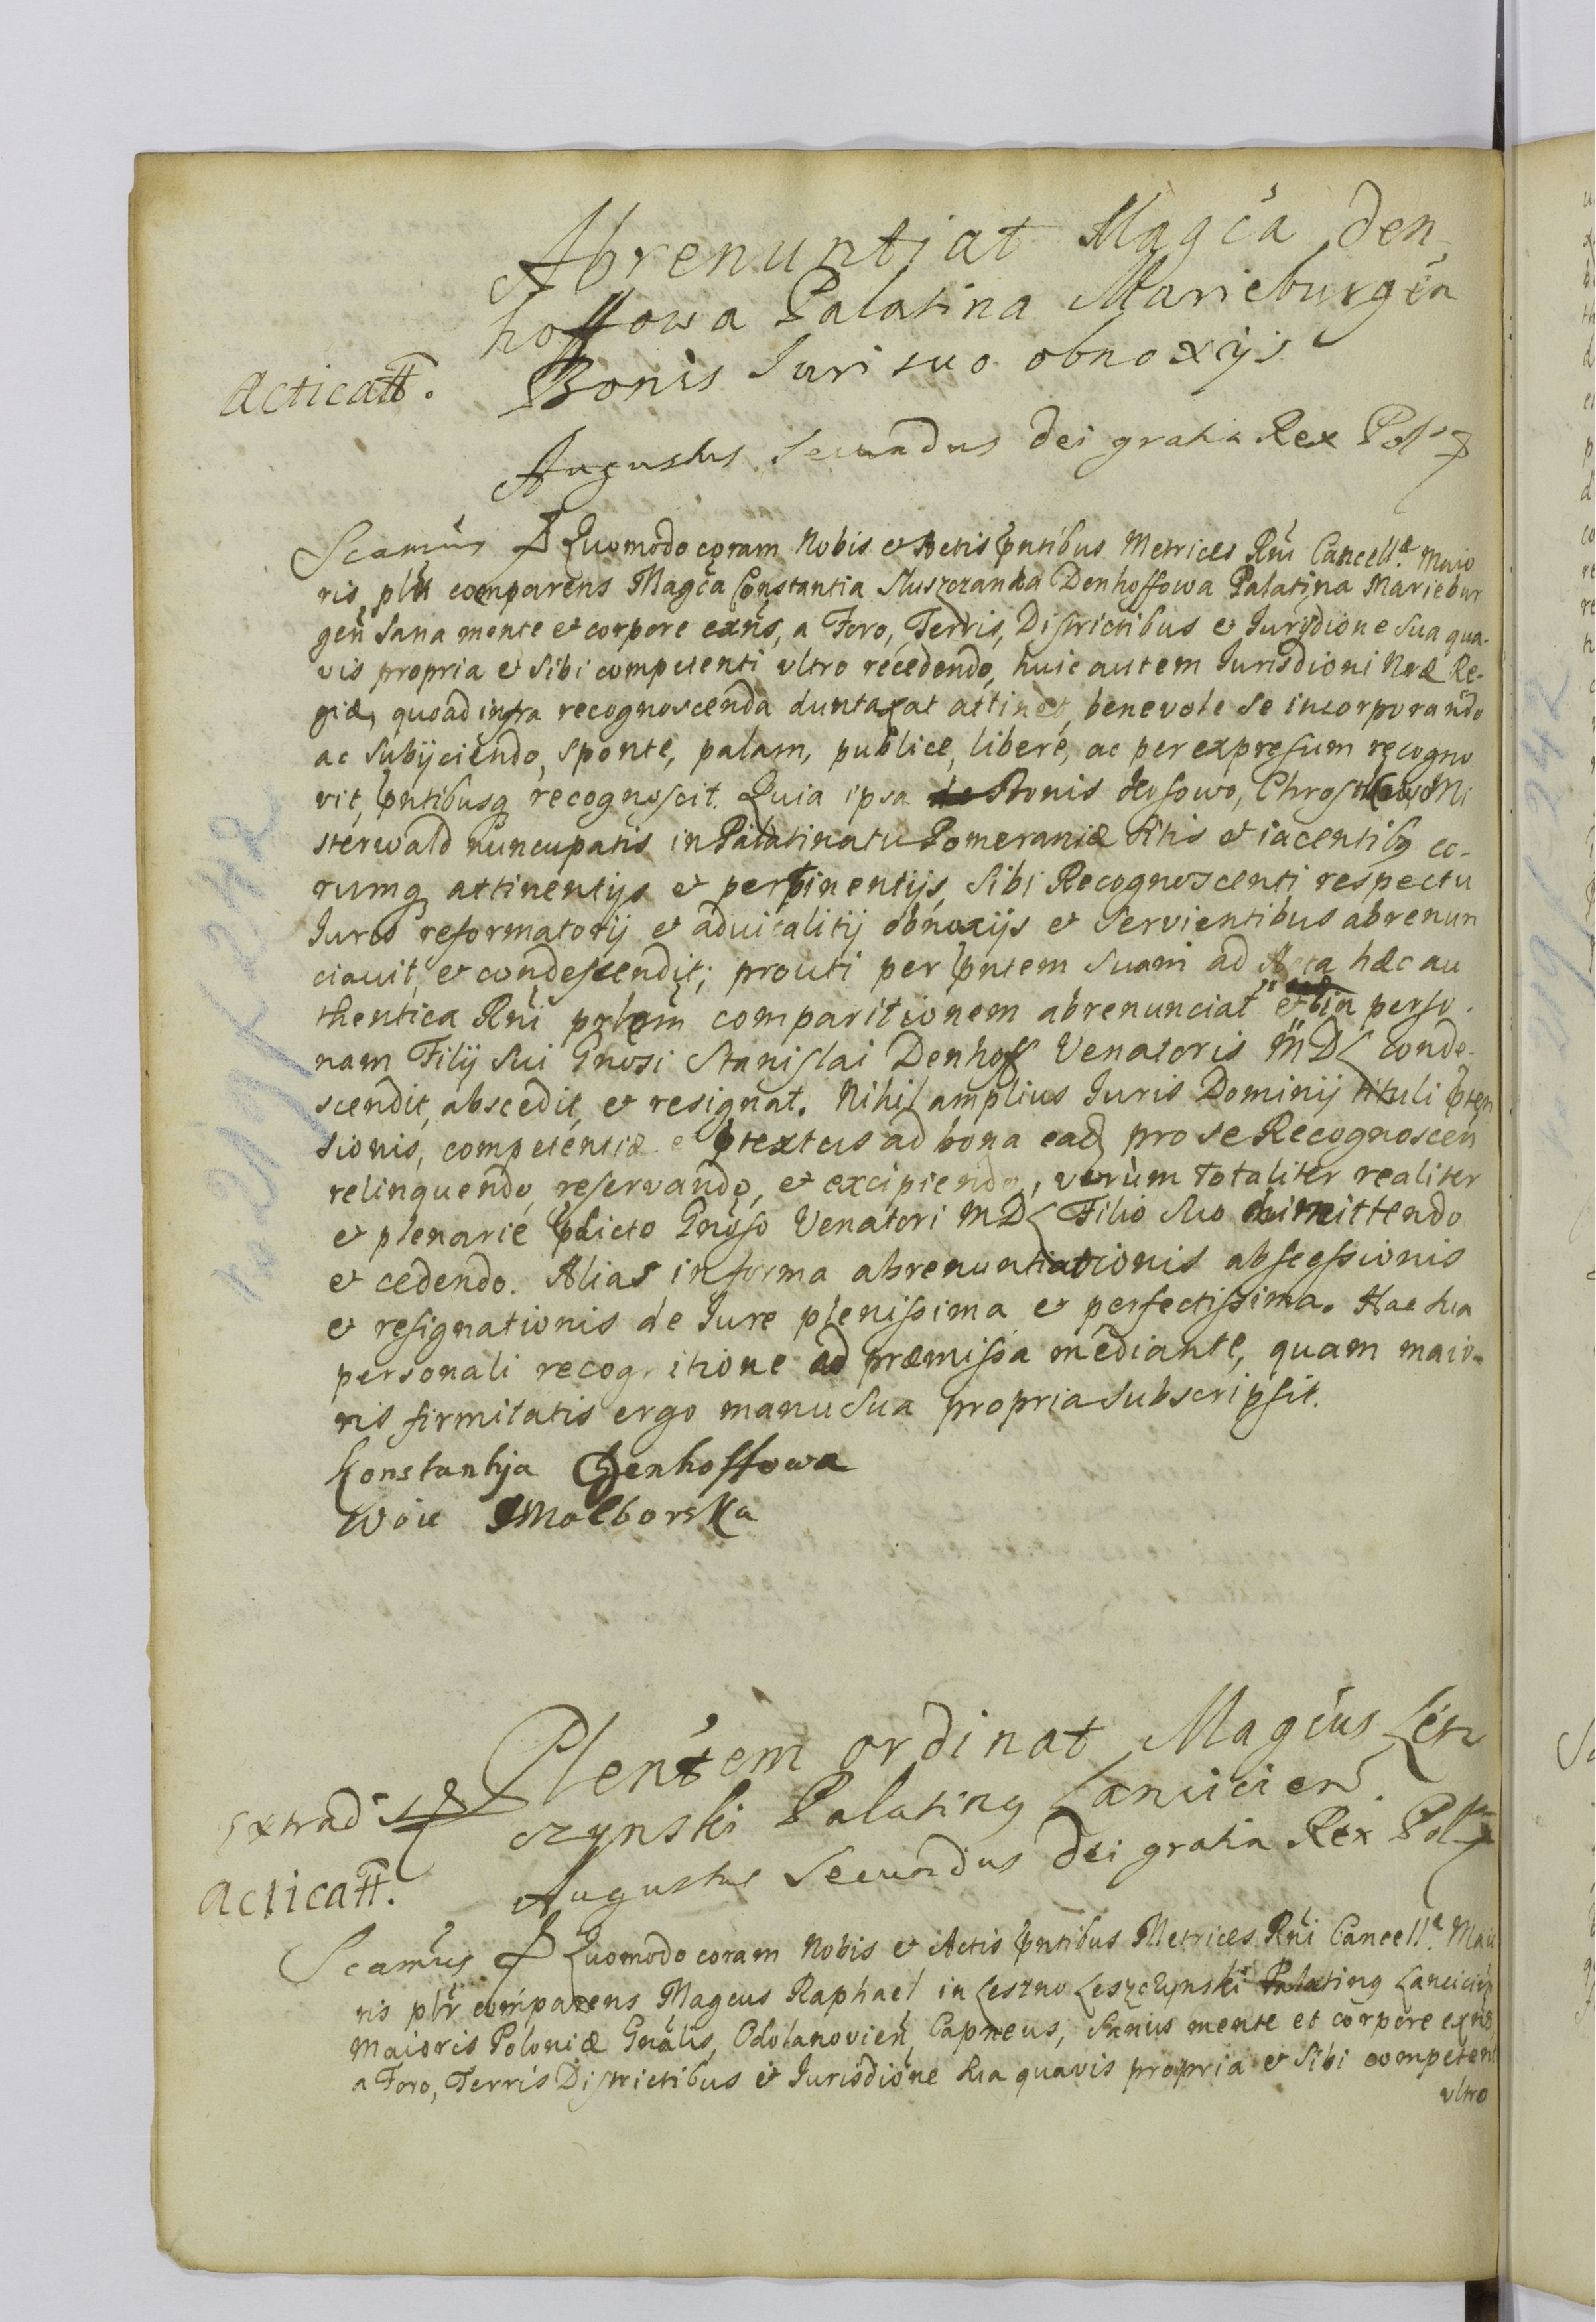 Abrenuntiat Magća Den-
hoffowa Palatina Marieburgén
Acticatt. Bonis Iuri suo obnoxijs
Augustus Secundus Dei gratia Rex Pol:
Scamús Quomodo coram Nobis et Actis pntibus Metrices Rni Cancellæ Maio
ris, plr comparens Magća Constantia Słuszczanka Denhoffowa Palatina Mariebur
gen̄ sana mente et corpore exns, a Foro, Terris, Districtibus et Jurisdione sua qua-
vis propria et sibi competenti ultro recedendo, huic autem Jurisdioni Nræ Re-
giæ, quoad infra recognoscenda duntaxat attinet, benevole se incorporando
ac subijciendo, sponte, palam, publice, libere, ac per expressum recogno
vit, pntibusq recognoscit. Quia ipsa Bonis
sterwald nuncupatis in Palatinatu Pomeraniæ sitis et iacentibq eo-
rumq attinentijs et pertinentijs sibi Recognoscenti respectu
Juris reformatorij et advitalitij obnoxijs et servientibus abrenun
ciavit, et condescendit; prouti per pntem suam ad Acta hæc au
thentica Rni prlem comparitionem abrenunciat et in perso-
nam Filij sui Gnosi Stanislai Denhoff Venatoris MDL conde-
scendit, abscedit, et resignat. Nihil amplius Juris Dominij tituli pten
sionis, competentiæ et ptextus ad bona ead pro se Recognoscen
relinquendo, reservando, et excipiendo, verùm totaliter realiter
et plenarie pdicto Gnoso Venatori MDL Filio suo dimittendo
et cedendo. Alias in forma abrenuntiationis abscessionis
et resignationis de Jure plenissima et perfectissima. Hac sua
personali recognitione ad præmissa mediante, quam maio-
ris firmitatis ergo manu sua propria subscripsit.
Konstantija Denhoffowa
Woie Malborska
Plenťem ordinat Magćus Lesz
Extrad czynski Palatinq Lanciciens
Acticatt. Augustus Secundus Dei gratia Rex Pol
Scamús Quomodo coram Nobis et Actis pntibus Metrices Rni Cancellæ Maio
ris plr comparens Magcus Raphael in Leszno Leszczynski Palatinq Lancicien
Maioris Poloniæ Gnalis, Odolanovien̄ Capneus, sanus mente et corpore exns,
a Foro, Terris Districtibus et Jurisdione sua quavis propria et sibi competent
ultro